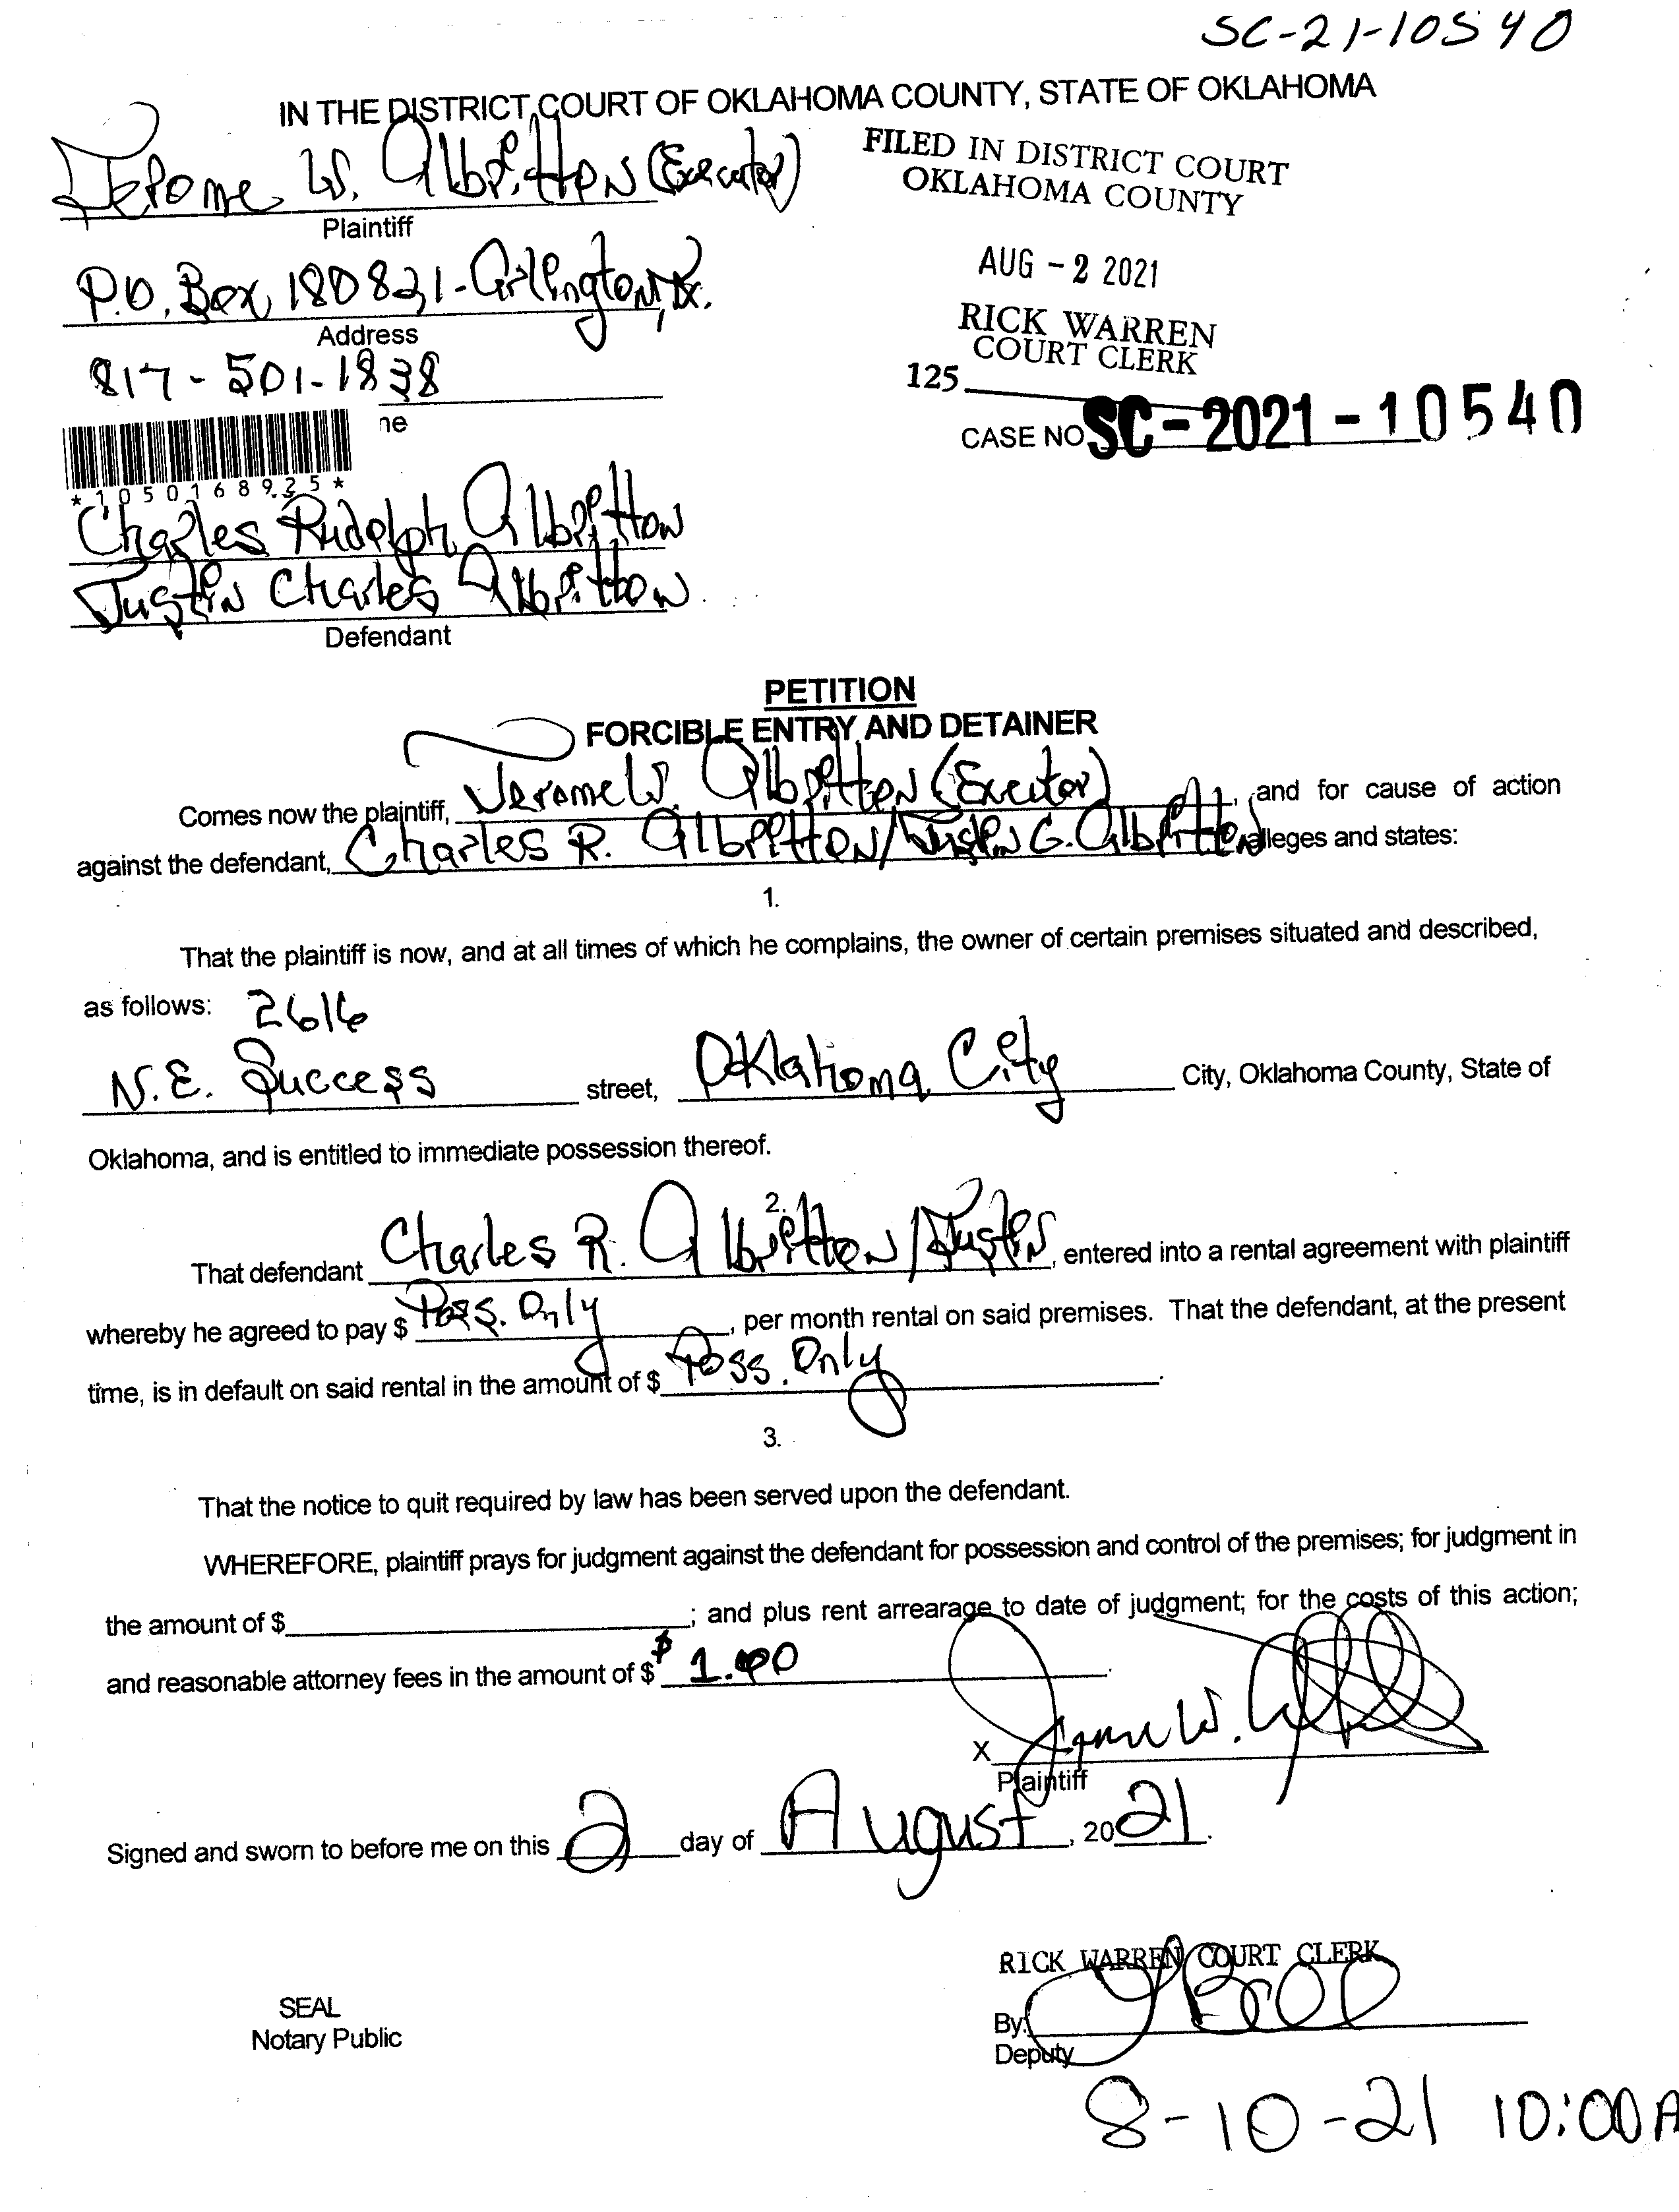 SC-21-10540
IN THE DISTRICT COURT OF OKLAHOMA COUNTY, STATE OF OKLAHOMA
Jerome W. Albritton (Executor)
Plaintiff
FILED IN DISTRICT COURT
OKLAHOMA COUNTY
P.O. Box 180821-Arlington, Tx.
Address
AUG - 2 2021
RICK WARREN
COURT CLERK
817-501-1838
ne
125
CASE NO SC-2021-10540
*1050168925*
Charles Rudolph Albritton
Justin Charles Albritton
Defendant
PETITION
FORCIBLE ENTRY AND DETAINER
Comes now the plaintiff, Jerome W. Albritton (Executor), and for cause of action
against the defendant, Charles R. Albritton/Justin C. Albritton alleges and states:
1.
That the plaintiff is now, and at all times of which he complains, the owner of certain premises situated and described,
as follows: 2616
N.E. Success street, Oklahoma City City, Oklahoma County, State of
Oklahoma, and is entitled to immediate possession thereof.
2.
That defendant Charles R. Albritton/Justin, entered into a rental agreement with plaintiff
whereby he agreed to pay $ Poss. Only, per month rental on said premises. That the defendant, at the present
time, is in default on said rental in the amount of $ Poss. Only.
3.
That the notice to quit required by law has been served upon the defendant.
WHEREFORE, plaintiff prays for judgment against the defendant for possession and control of the premises; for judgment in
the amount of $; and plus rent arrearage to date of judgment; for the costs of this action;
and reasonable attorney fees in the amount of $ $ 1.00.
X Jerome W. Albritton
Plaintiff
Signed and sworn to before me on this 2 day of August, 2021.
RICK WARREN COURT CLERK
SEAL
Notary Public
By:
Deputy
8-10-21 10:00A